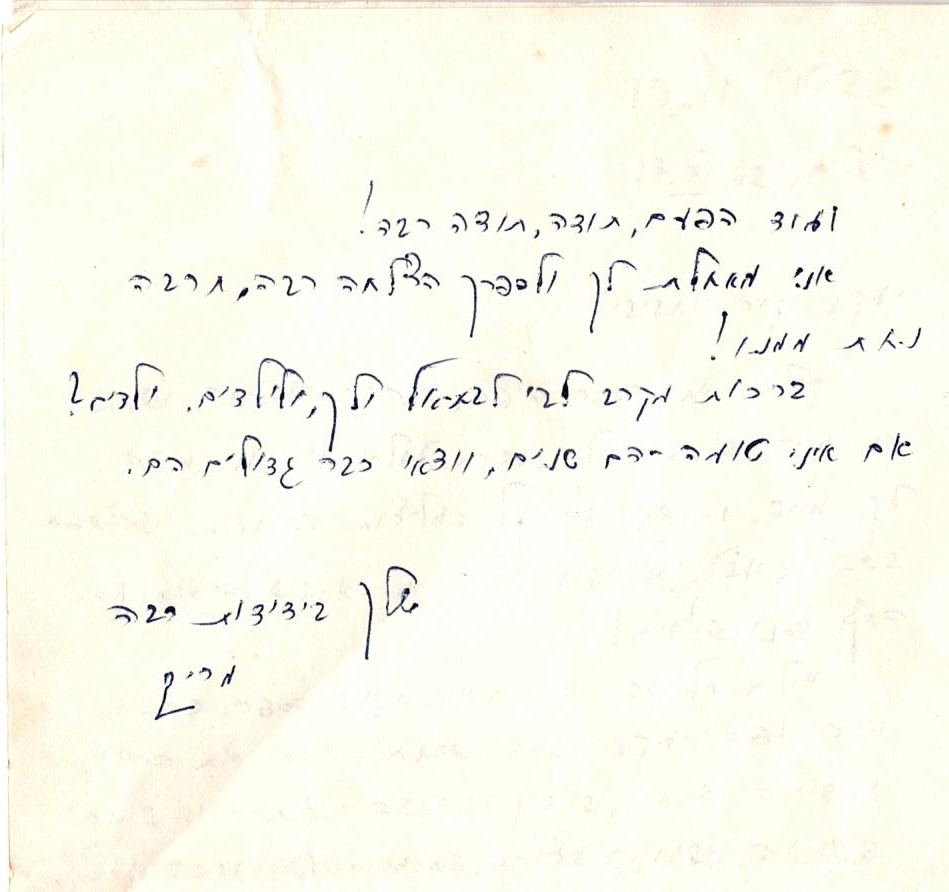 ועוד הפעם, תודה, תודה רבה!
אני מאחלת לך ולספרך הצלחה רבה, הרבה
נחת ממנו!
ברכות מקרב לבי ולך, ולילדים. ילדים?
אם איני טועה הם שניים, וודאי כבר גדולים הם.
שלך בידידות רבה